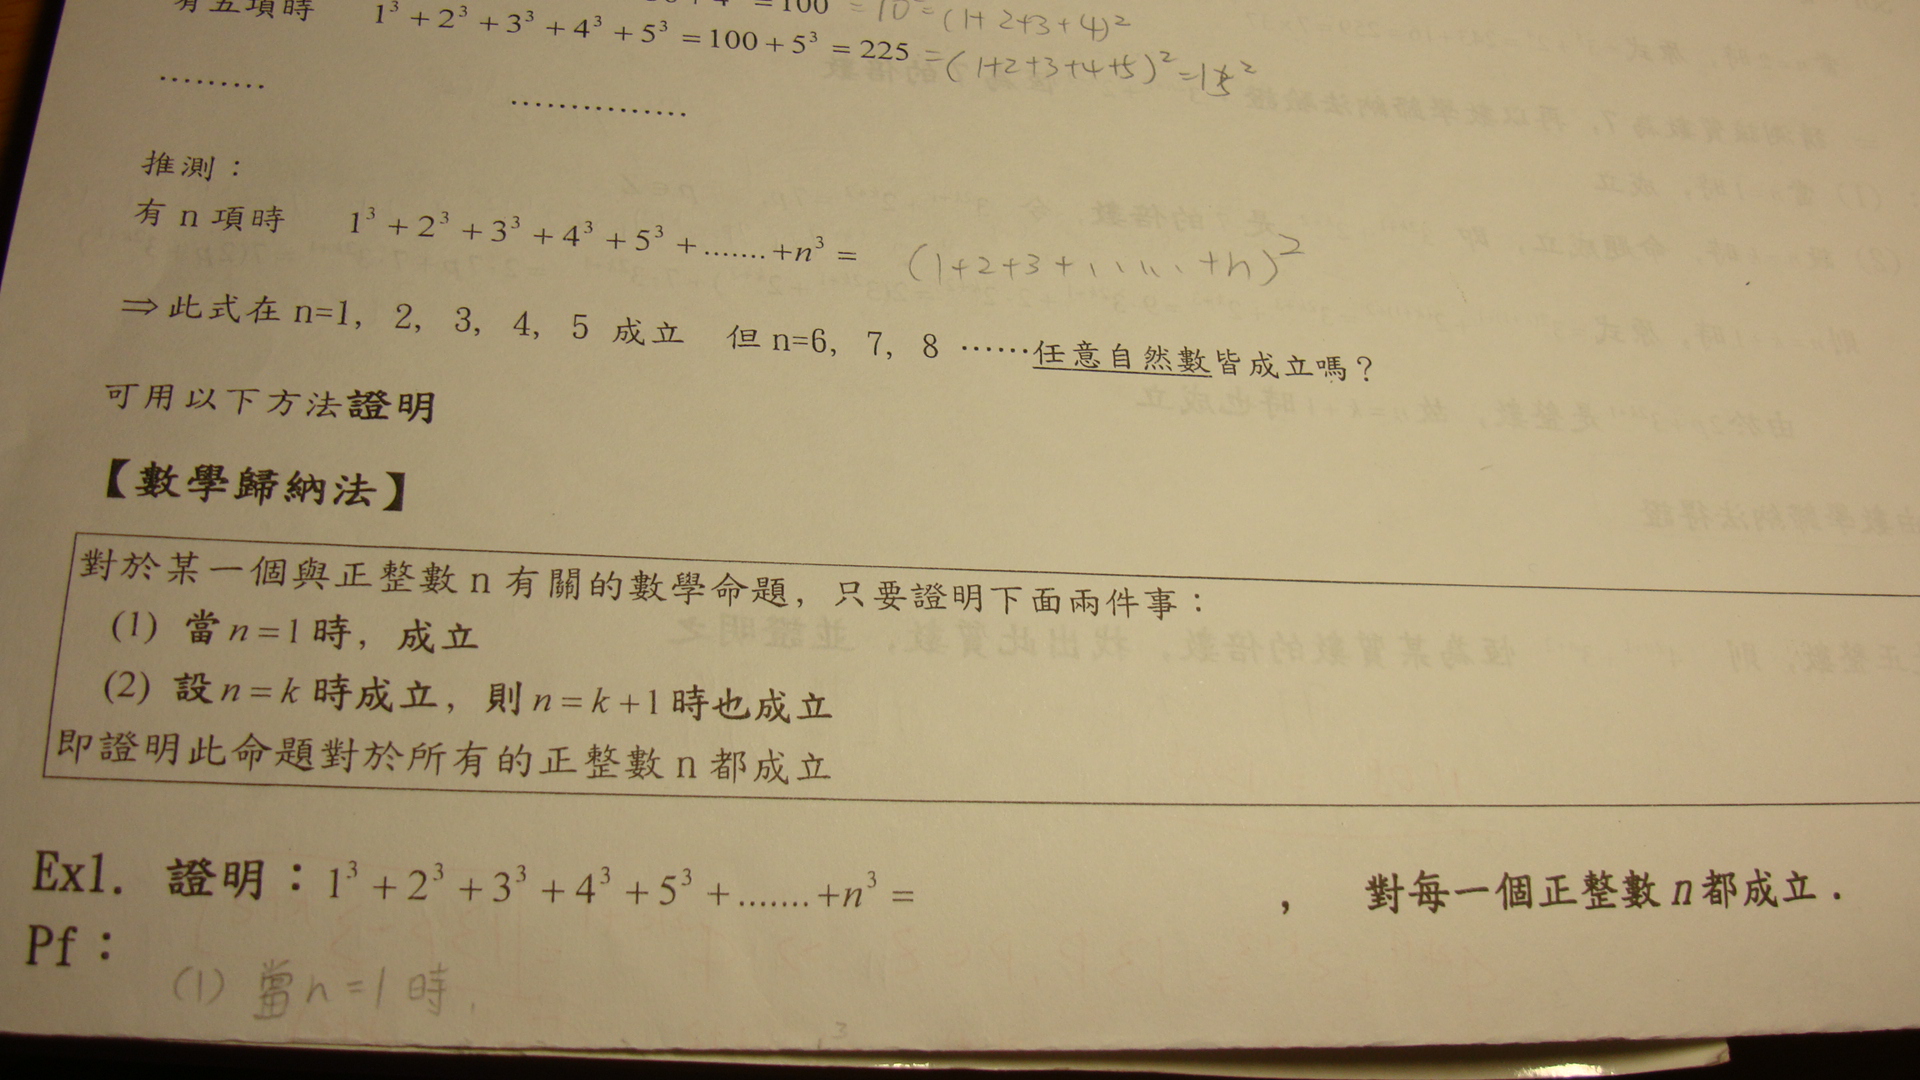 = 100 = 10² = (1+2+3+4)²
有五項時 1³ + 2³ + 3³ + 4³ + 5³ = 100 + 5³ = 225 = (1+2+3+4+5)² = 15²
......... ...............
推測：
有 n 項時 1³ + 2³ + 3³ + 4³ + 5³ + ....... + n³ = (1+2+3+......+n)²
⇒ 此式在 n=1, 2, 3, 4, 5 成立 但 n=6, 7, 8 ……任意自然數皆成立嗎？
可用以下方法證明
【數學歸納法】
對於某一個與正整數 n 有關的數學命題，只要證明下面兩件事：
(1) 當 n = 1 時，成立
(2) 設 n = k 時成立，則 n = k + 1 時也成立
即證明此命題對於所有的正整數 n 都成立
Ex1. 證明：1³ + 2³ + 3³ + 4³ + 5³ + ....... + n³ = ， 對每一個正整數 n 都成立．
Pf：
(1) 當 n = 1 時,